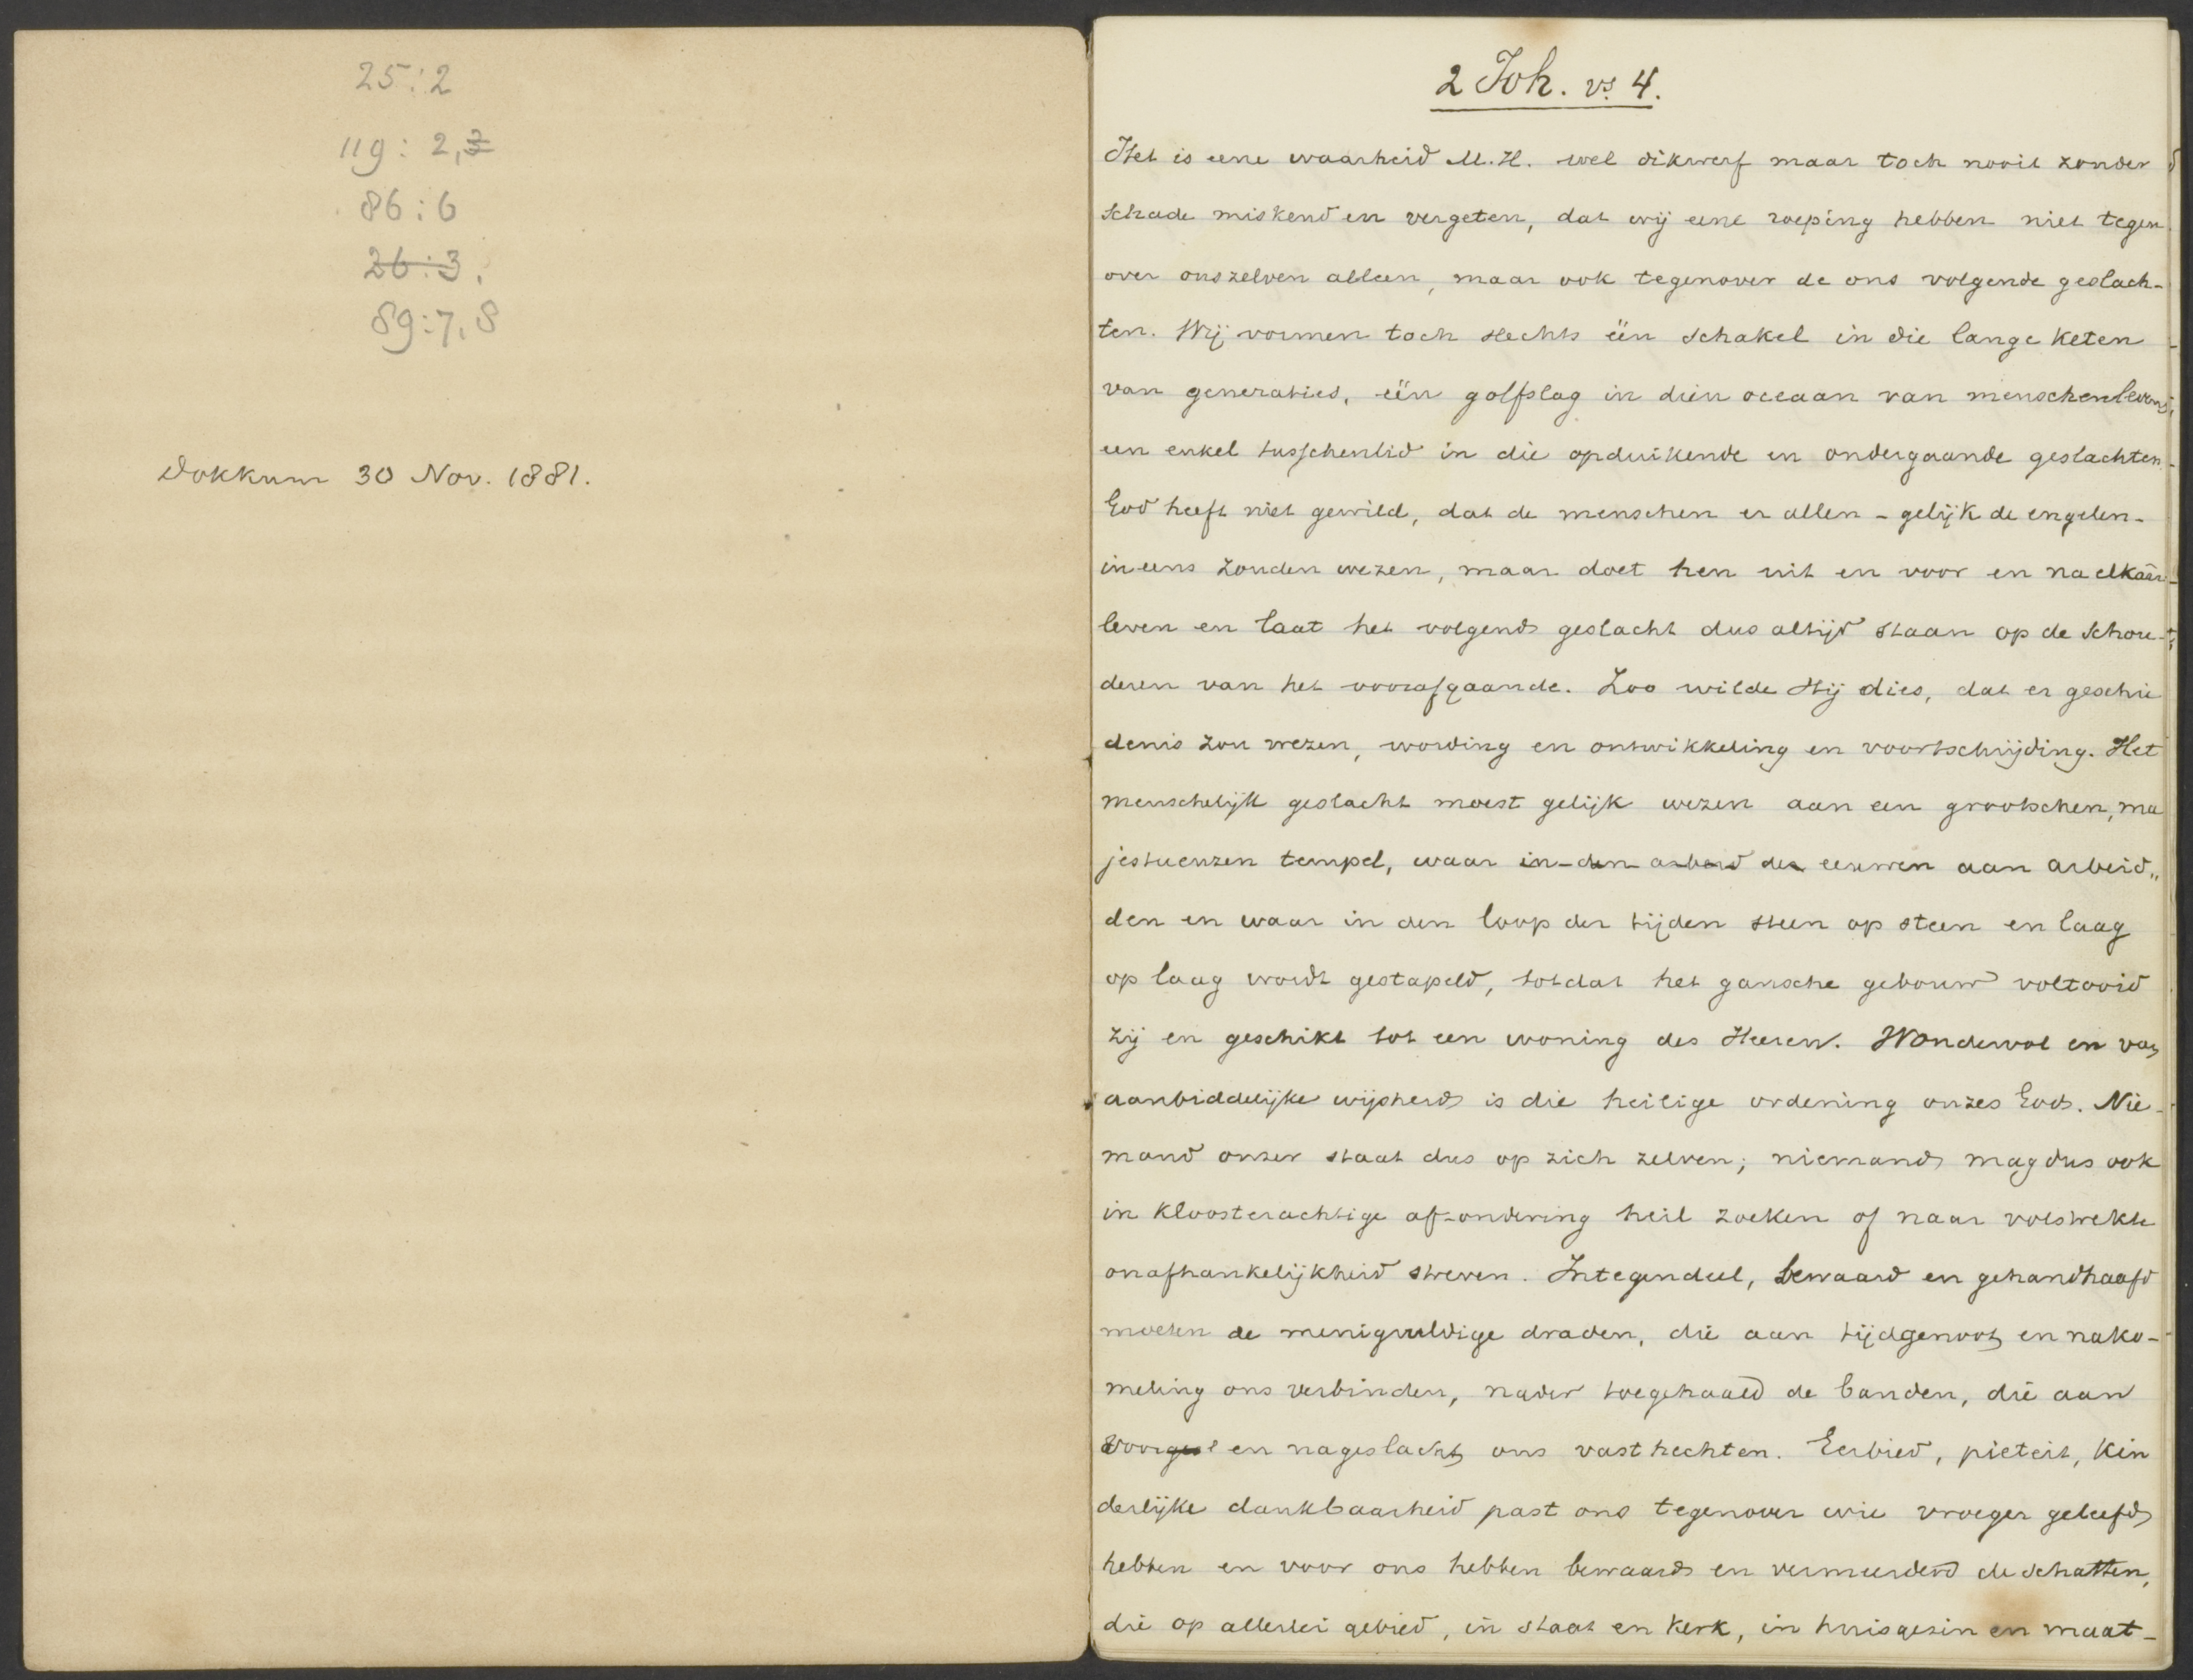 25:2
119: 2,3
86:6
26:3.
89:7,8
Dokkum 30 Nov. 1881.
2 Joh. vs 4.
Het is eene waarheid M.H. wel dikwerf maar toch nooit zonder
schade miskend en vergeten, dat wij eene roeping hebben niet tegen
over ons zelven alleen, maar ook tegenover de ons volgende geslach-
ten. Wij vormen toch slechts één schakel in die lange keten
van generaties, één golfslag in dien oceaan van menschenlevens,
een enkel tusschenlid in die opduikende en ondergaande geslachten.
God heeft niet gewild, dat de menschen er allen - gelijk de engelen -
in eens zouden wezen, maar doet hen uit en voor en na elkaar
leven en laat het volgend geslacht dus altijd staan op de schou-
deren van het voorafgaande. Zoo wilde Hij dies, dat er geschie
denis zou wezen, wording en ontwikkeling en voortschrijding. Het
menschelijk geslacht moest gelijk wezen aan een grootschen, ma
jestueuzen tempel, waar in den arbeid der eeuwen aan arbeid„
den en waar in den loop der tijden steen op steen en laag
op laag wordt gestapeld, totdat het gansche gebouw voltooid
zij en geschikt tot een woning des Heeren. Wondervol en van
aanbiddelijke wijsheid is die heilige ordening onzes Gods. Nie-
mand onzer staat dus op zich zelven; niemand mag dus ook
in kloosterachtige afzondering heil zoeken of naar volstrekte
onafhankelijkheid streven. Integendeel, bewaard en gehandhaafd
moeten de menigvuldige draden, die aan tijdgenoot en nako-
meling ons verbinden, nader toegehaald de banden, die aan
voorgesl en nageslacht ons vasthechten. Eerbied, pieteit, kin
derlijke dankbaarheid past ons tegenover wie vroeger geleefd
hebben en voor ons hebben bewaard en vermeerderd de schatten,
die op allerlei gebied, in staat en kerk, in huisgezin en maat-